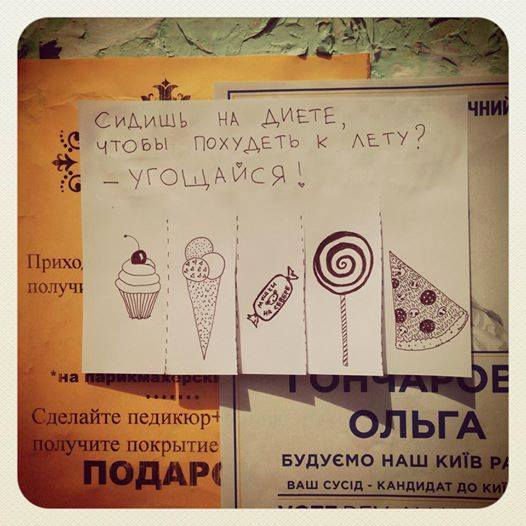 СИДИШЬ НА ДИЕТЕ,
ЧТОБЫ ПОХУДЕТЬ К ЛЕТУ?
– УГОЩАЙСЯ!
МИШКИ
НА СЕВЕРЕ
*на парикмахерск
Сделайте педикюр+
получите покрытие
ПОДАР
ЧНИЙ
ГОНЧАРОВ
ОЛЬГА
БУДУЄМО НАШ КИЇВ РА
ВАШ СУСІД - КАНДИДАТ ДО КИЇ